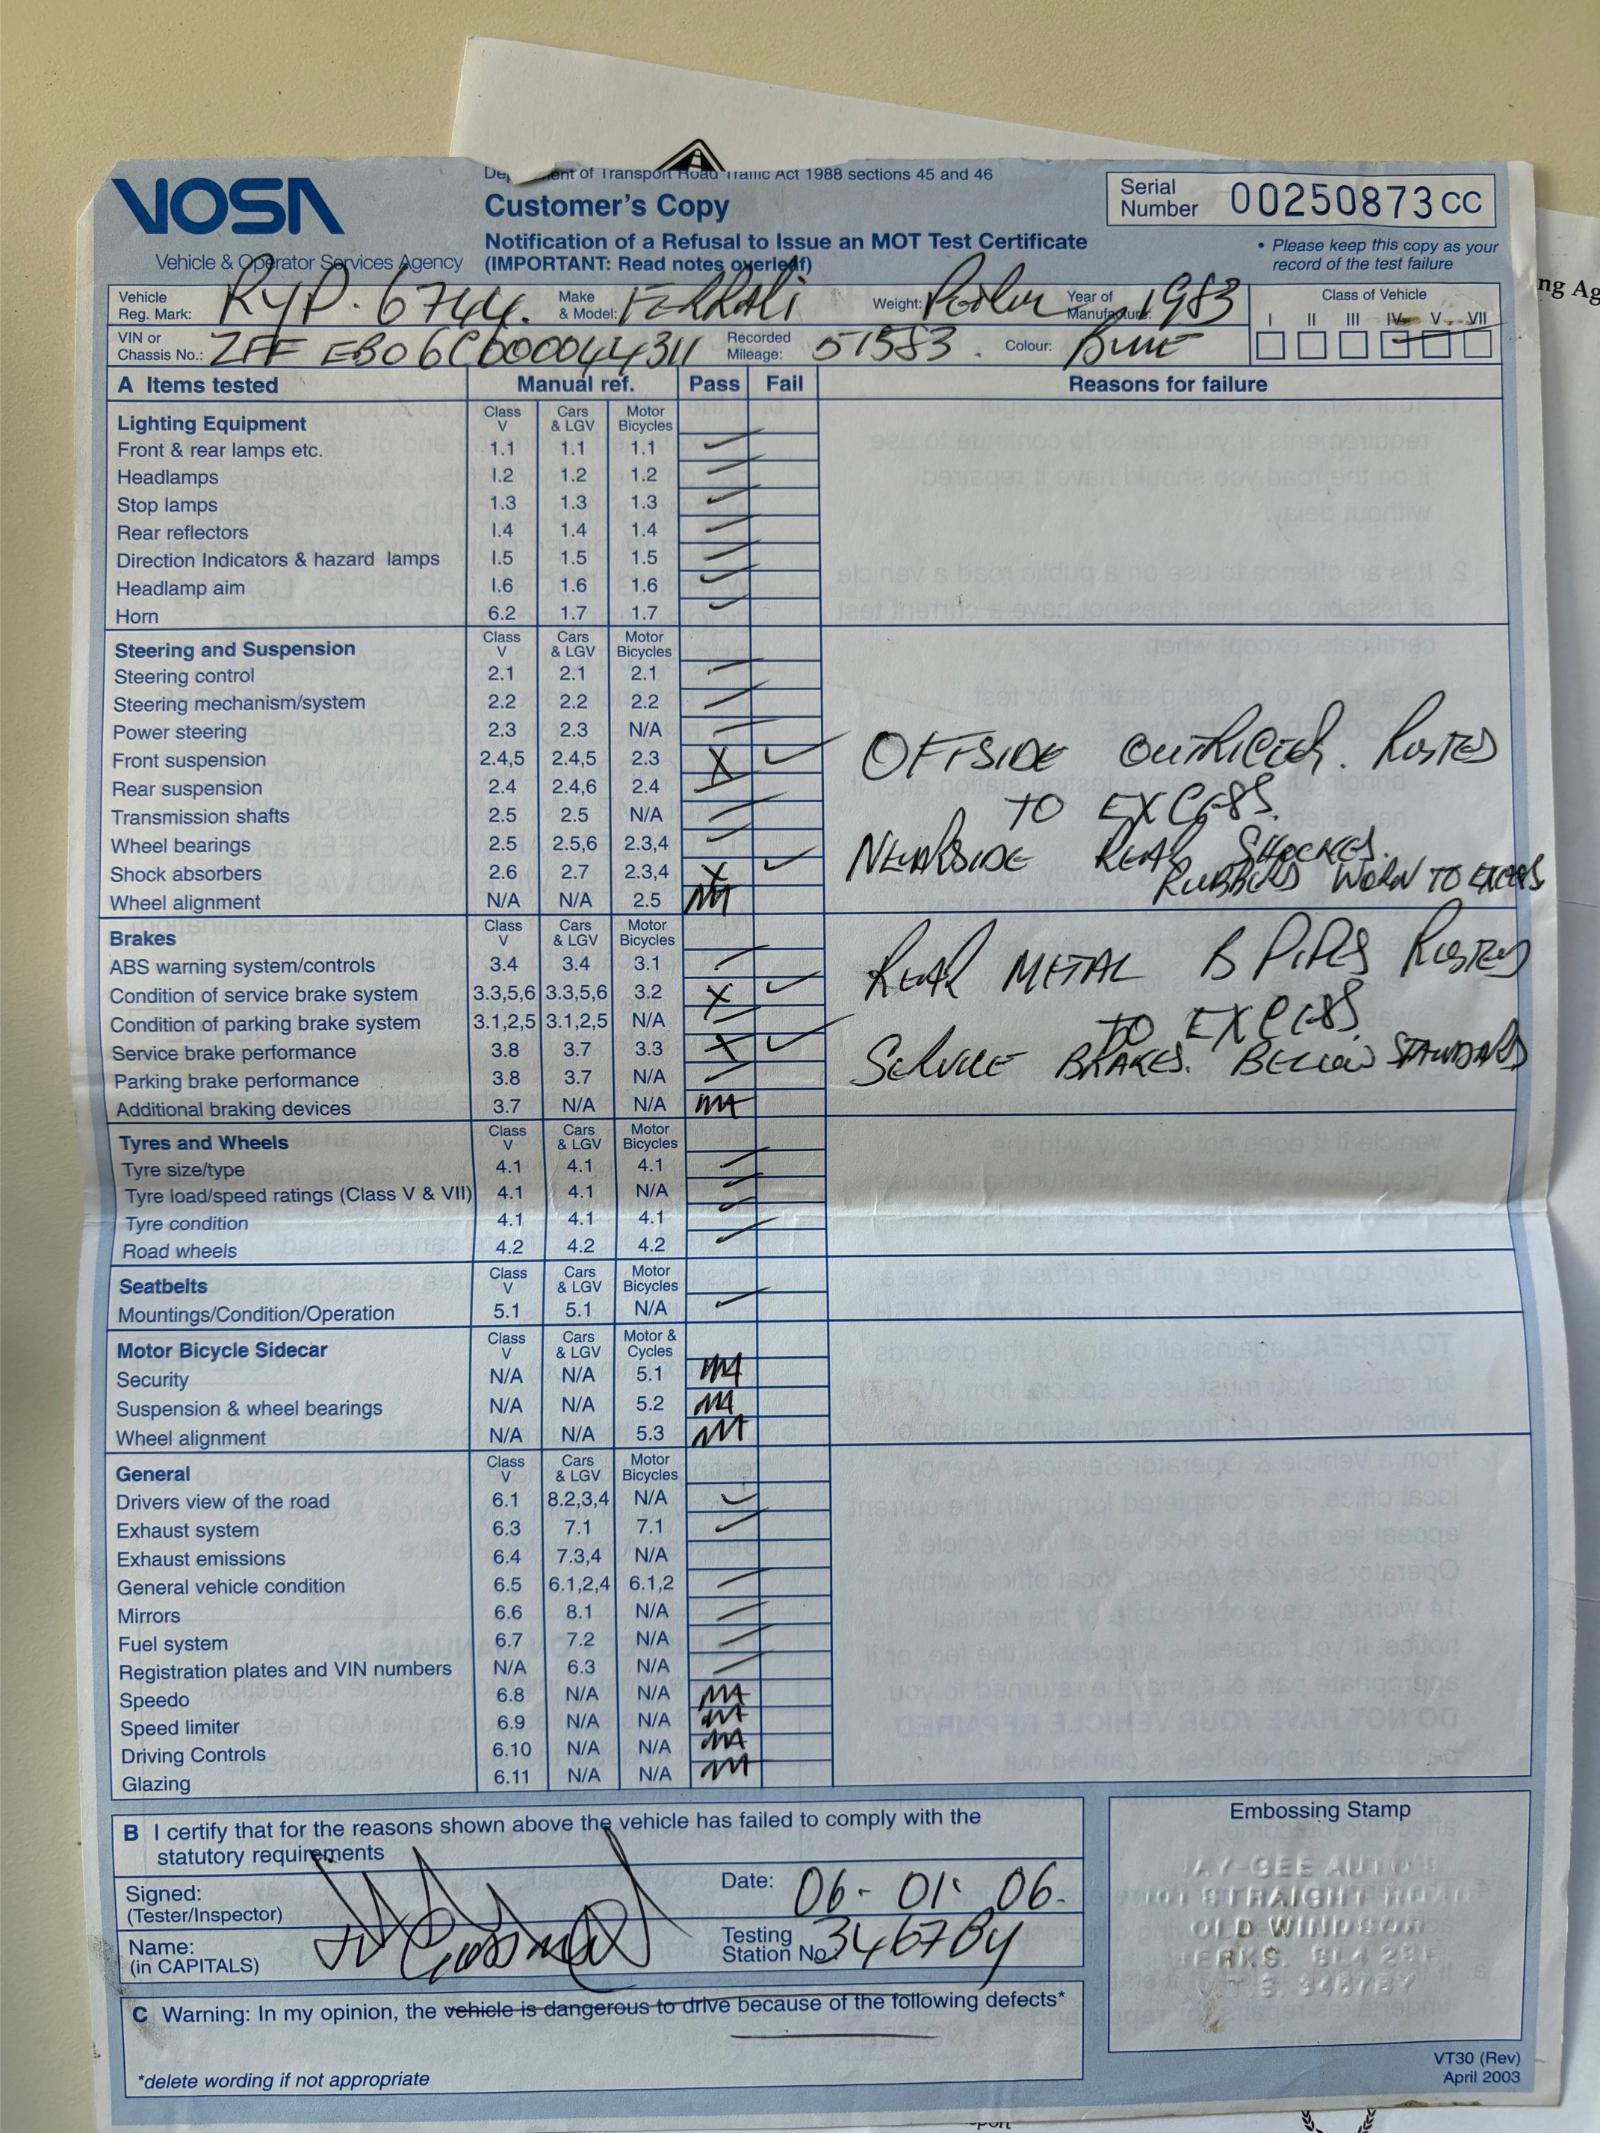 VOSA
Vehicle & Operator Services Agency
of Transport Road Traffic Act 1988 sections 45 and 46
Customer's Copy
Notification of a Refusal to Issue an MOT Test Certificate
(IMPORTANT: Read notes overleaf)
Serial Number 00250873 CC
• Please keep this copy as your
record of the test failure
ng Ag
Vehicle Reg. Mark: RYP. 6744. Make & Model: FERRARI Weight: Year of Manufacture: 1983
Class of Vehicle
I II III IV V VII
VIN or Chassis No.: Recorded Mileage: 51583. Colour: BLUE
A Items tested Manual ref. Pass Fail Reasons for failure
Lighting Equipment Class V Cars & LGV Motor Bicycles
Front & rear lamps etc. 1.1 1.1 1.1
Headlamps I.2 1.2 1.2
Stop lamps 1.3 1.3 1.3
Rear reflectors I.4 1.4 1.4
Direction Indicators & hazard lamps I.5 1.5 1.5
Headlamp aim I.6 1.6 1.6
Horn 6.2 1.7 1.7
Steering and Suspension Class V Cars & LGV Motor Bicycles
Steering control 2.1 2.1 2.1
Steering mechanism/system 2.2 2.2 2.2
Power steering 2.3 2.3 N/A
Front suspension 2.4,5 2.4,5 2.3 X ✓ OFFSIDE OUTRIGER. RUSTED
Rear suspension 2.4 2.4,6 2.4
TO EXCESS.
Transmission shafts 2.5 2.5 N/A
Wheel bearings 2.5 2.5,6 2.3,4
Shock absorbers 2.6 2.7 2.3,4 X ✓ NEARSIDE REAR SHOCKES.
RUBBERS WORN TO EXCESS
Wheel alignment N/A N/A 2.5 NA
Brakes Class V Cars & LGV Motor Bicycles
ABS warning system/controls 3.4 3.4 3.1
Condition of service brake system 3.3,5,6 3.3,5,6 3.2 X ✓ REAR METAL B PIPES RUSTED
Condition of parking brake system 3.1,2,5 3.1,2,5 N/A
TO EXCESS.
Service brake performance 3.8 3.7 3.3 X ✓ SERVICE BRAKES. BELLOW STANDARD
Parking brake performance 3.8 3.7 N/A
Additional braking devices 3.7 N/A N/A NA
Tyres and Wheels Class V Cars & LGV Motor Bicycles
Tyre size/type 4.1 4.1 4.1
Tyre load/speed ratings (Class V & VII) 4.1 4.1 N/A
Tyre condition 4.1 4.1 4.1
Road wheels 4.2 4.2 4.2
Seatbelts Class V Cars & LGV Motor Bicycles
Mountings/Condition/Operation 5.1 5.1 N/A
Motor Bicycle Sidecar Class V Cars & LGV Motor & Cycles
Security N/A N/A 5.1 NA
Suspension & wheel bearings N/A N/A 5.2 NA
Wheel alignment N/A N/A 5.3 NA
General Class V Cars & LGV Motor Bicycles
Drivers view of the road 6.1 8.2,3,4 N/A
Exhaust system 6.3 7.1 7.1
Exhaust emissions 6.4 7.3,4 N/A
General vehicle condition 6.5 6.1,2,4 6.1,2
Mirrors 6.6 8.1 N/A
Fuel system 6.7 7.2 N/A
Registration plates and VIN numbers N/A 6.3 N/A
Speedo 6.8 N/A N/A NA
Speed limiter 6.9 N/A N/A NA
Driving Controls 6.10 N/A N/A NA
Glazing 6.11 N/A N/A NA
B I certify that for the reasons shown above the vehicle has failed to comply with the
statutory requirements
Signed: (Tester/Inspector) Date: 06-01-06.
Name: (in CAPITALS) Testing Station No: 3467BY
C Warning: In my opinion, the vehicle is dangerous to drive because of the following defects*
*delete wording if not appropriate
Embossing Stamp
JAY-GEE AUTO'S
STRAIGHT ROAD
OLD WINDSOR
BERKS.
V.T.S. 3467BY
VT30 (Rev)
April 2003